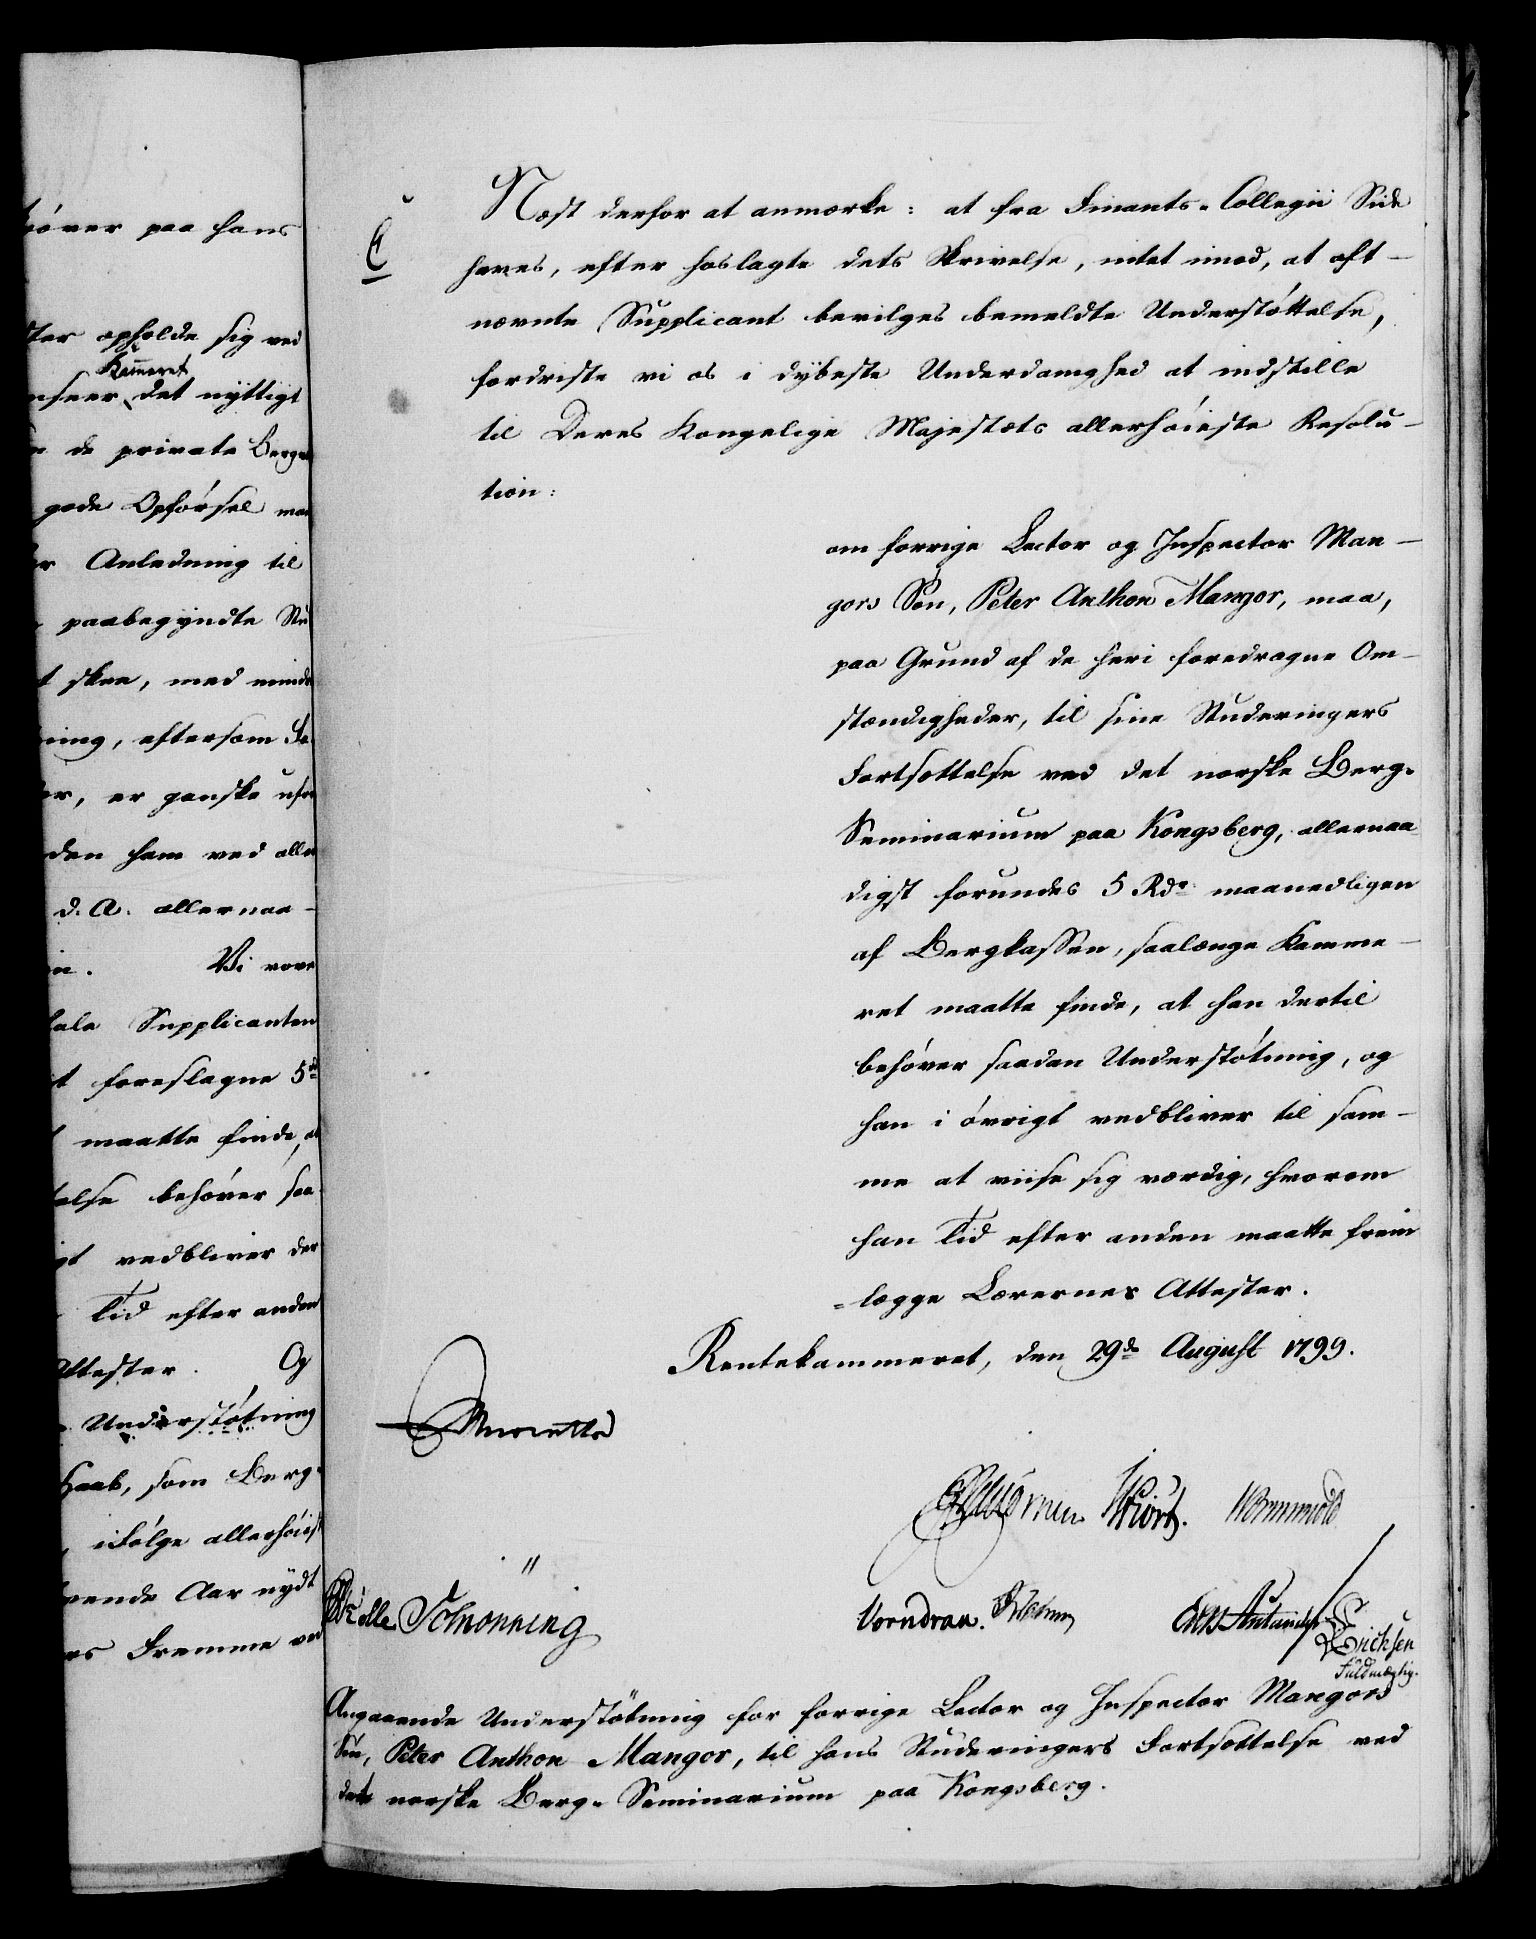 paa hans
opholde sig ved
Kam̅eret
det nyttigt
de private Berg
gode Opførsel
Anledning til
paabegyndte
skee, med
eftersom
er ganske
ham ved
d. A. allernaa-
Vi
Supplicanten
foreslagne 5
maatte finde,
behøver saa
vedbliver der
Tid efter anden
Attester. Og
Understøtning
Haab, som Berg-
ifølge allerhøiest
Aar nydt
Fremme
E
Næst derfor at anmærke: at fra Finants-Collegii Side
haves, efter hoslagte dets Skrivelse, intet imod, at oft-
nævnte Supplicant bevilges bemeldte Understøttelse,
fordriste vi os i dybeste Underdanighed at indstille
til Deres Kongelige Majestæts allerhøieste Resolu-
tion:
om forrige Lector og Inspector Man-
gors Søn, Peter Anthon Mangor, maa,
paa Grund af de heri foredragne Om-
stændigheder, til sine Studeringers
Fortsættelse ved det norske Berg-
Seminarium paa Kongsberg, allernaa
digst forundes 5 Rdr. maanedligen
af Bergkassen, saalænge Kamme-
ret maatte finde, at han dertil
behøver saadan Understøtning, og
han i øvrigt vedbliver til sam-
me at viise sig værdig, hvorom
han Tid efter anden maatte frem
=lægge Lærernes Attester.
Rentekammeret, den 29de August 1799.
Wormskiold
Schønning
Vorndran.
Ericksen
Fuldmægtig.
Angaaende Understøtning for forrige Lector og Inspector Mangors
Søn, Peter Anthon Mangor, til hans Studeringers Fortsættelse ved
det norske Berg-Seminarium paa Kongsberg.